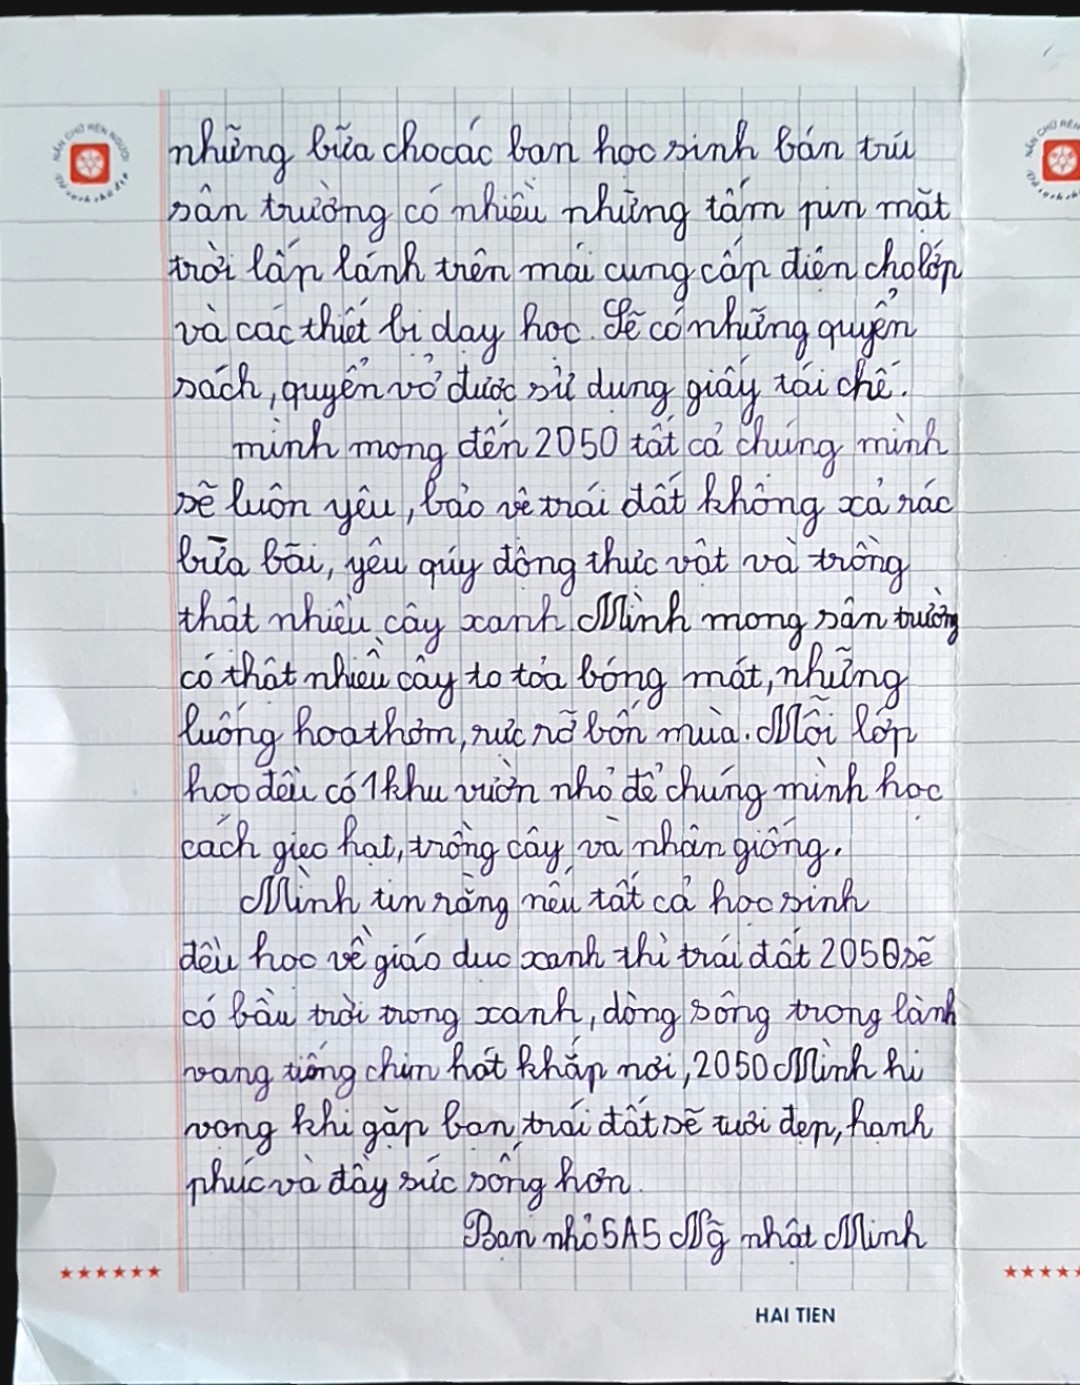 những bữa cho các bạn học sinh bán trú
sân trường có nhiều những tấm pin mặt
trời lấp lánh trên mái cung cấp điện cho lớp
và các thiết bị dạy học. Sẽ có những quyển
sách, quyển vở được sử dụng giấy tái chế.
mình mong đến 2050 tất cả chúng mình
sẽ luôn yêu, bảo vệ trái đất không xả rác
bừa bãi, yêu quý động thực vật và trồng
thật nhiều cây xanh Mình mong sân trường
có thật nhiều cây to tỏa bóng mát, những
luống hoa thơm, rực rỡ bốn mùa. Mỗi lớp
học đều có 1 khu vườn nhỏ để chúng mình học
cách gieo hạt, trồng cây và nhân giống.
Mình tin rằng nếu tất cả học sinh
đều học về giáo dục xanh thì trái đất 2050 sẽ
có bầu trời trong xanh, dòng sông trong lành
vang tiếng chim hót khắp nơi, 2050 Mình hi
vọng khi gặp bạn trái đất sẽ tươi đẹp, hạnh
phúc và đầy sức sống hơn.
Bạn nhỏ 5A5 Ng̃ nhật Minh
HAI TIEN
NẮN CHỮ RÈN NGƯỜI
Vở sạch chữ đẹp